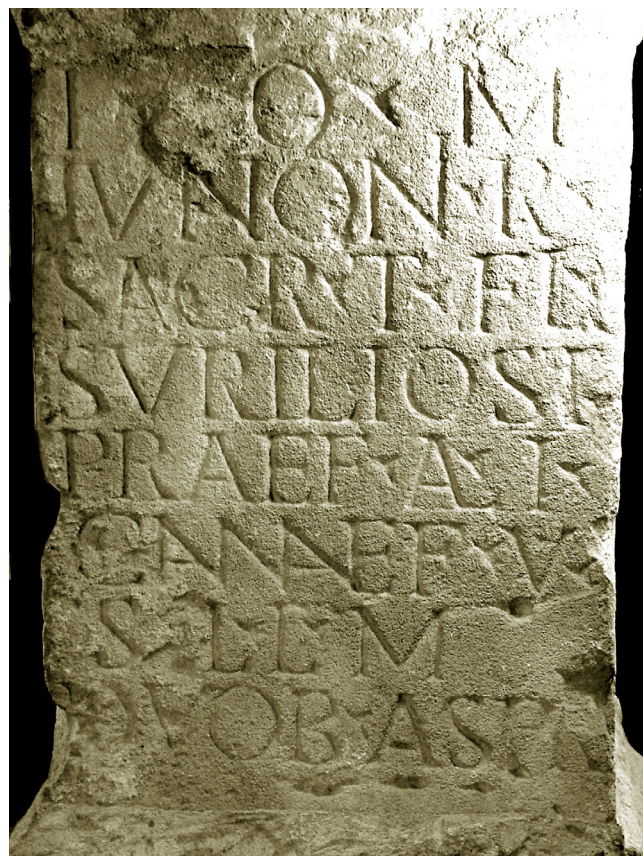 I O M
IVNON·R·
SACR·VT·FL
SVRILIOST
PRAEF·A·I·
CANNAEF·V·
S·L·L·M
DVOB·ASPR